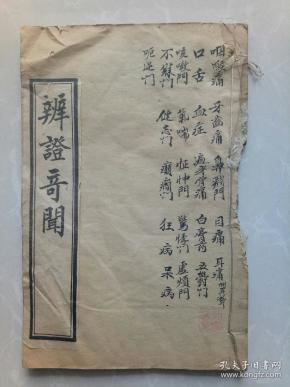 咽喉痛 牙齒痛 鼻淵門 目痛 耳痛
口舌 血症 遍身骨痛 白虎 五鬱門
咳嗽門 氣喘 怔忡門 驚悸門 虛煩門
不寐門 健忘門 癲癇門 狂病 呆病
呃逆門
辨證奇聞
孔夫子旧书网